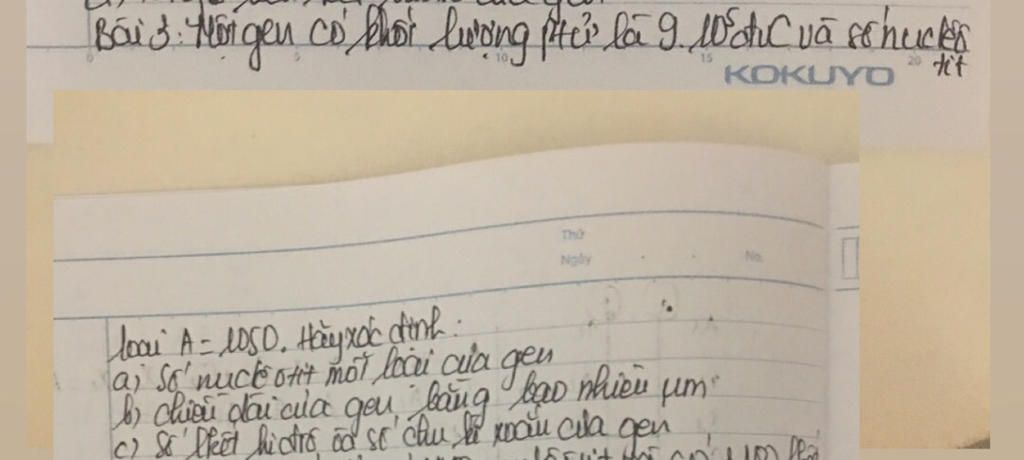 Bài 3: Một gen có khối lượng ptử là 9.10⁵ đvC và số nuclêô
tit
0 5 10 15 20
KOKUYO
Thứ
Ngày No.
loại A = 1050. Hãy xác định:
a) Số nuclêôtit mỗi loại của gen
b) chiều dài của gen bằng bao nhiêu µm
c) Số lkết hiđrô và số chu kì xoắn của gen